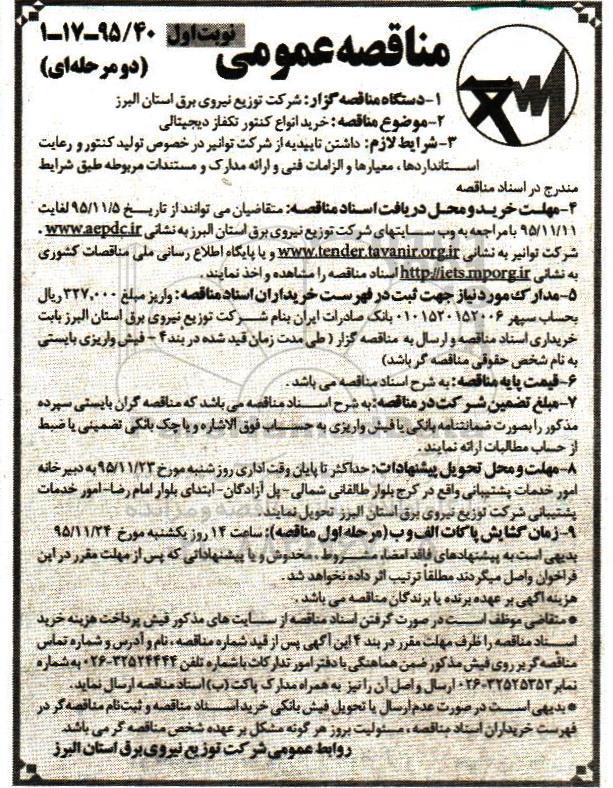 مناقصه عمومی نوبت اول ۱-۱۷-۹۵/۴۰
(دو مرحله‌ای)
۱-دستگاه مناقصه گزار: شرکت توزیع نیروی برق استان البرز
۲-موضوع مناقصه: خرید انواع کنتور تکفاز دیجیتالی
۳-شرایط لازم: داشتن تاییدیه از شرکت توانیر در خصوص تولید کنتور و رعایت
استانداردها، معیارها و الزامات فنی و ارائه مدارک و مستندات مربوطه طبق شرایط
مندرج در اسناد مناقصه
۴-مهلت خرید و محل دریافت اسناد مناقصه: متقاضیان می توانند از تاریخ ۹۵/۱۱/۵ لغایت
۹۵/۱۱/۱۱ با مراجعه به وب سایتهای شرکت توزیع نیروی برق استان البرز به نشانی www.aepdc.ir ،
شرکت توانیر به نشانی www.tender.tavanir.org.ir و یا پایگاه اطلاع رسانی ملی مناقصات کشوری
به نشانی http://iets.mporg.ir اسناد مناقصه را مشاهده و اخذ نمایند .
۵-مدارک مورد نیاز جهت ثبت در فهرست خریداران اسناد مناقصه: واریز مبلغ ۳۲۷,۰۰۰ ریال
بحساب سپهر ۰۱۰۱۵۲۰۱۵۲۰۰۶ بانک صادرات ایران بنام شرکت توزیع نیروی برق استان البرز بابت
خریداری اسناد مناقصه و ارسال به مناقصه گزار ( طی مدت زمان قید شده در بند ۴ - فیش واریزی بایستی
به نام شخص حقوقی مناقصه گر باشد)
۶-قیمت پایه مناقصه: به شرح اسناد مناقصه می باشد .
۷-مبلغ تضمین شرکت در مناقصه: به شرح اسناد مناقصه می باشد که مناقصه گران بایستی سپرده
مذکور را بصورت ضمانتنامه بانکی یا فیش واریزی به حساب فوق الاشاره و یا چک بانکی تضمینی یا ضبط
از حساب مطالبات ارائه نمایند .
۸-مهلت و محل تحویل پیشنهادات: حداکثر تا پایان وقت اداری روز شنبه مورخ ۹۵/۱۱/۲۳ به دبیر خانه
امور خدمات پشتیبانی واقع در کرج بلوار طالقانی شمالی-پل آزادگان-ابتدای بلوار امام رضا-امور خدمات
پشتیبانی شرکت توزیع نیروی برق استان البرز تحویل نمایند.
۹-زمان گشایش پاکات الف و ب (مرحله اول مناقصه): ساعت ۱۴ روز یکشنبه مورخ ۹۵/۱۱/۲۴
بدیهی است به پیشنهادهای فاقد امضاء، مشروط، مخدوش و یا پیشنهاداتی که پس از مهلت مقرر در این
فراخوان واصل میگردند مطلقاً ترتیب اثر داده نخواهد شد .
هزینه آگهی بر عهده برنده یا برندگان مناقصه می باشد .
● متقاضی موظف است در صورت گرفتن اسناد مناقصه از سایت های مذکور فیش پرداخت هزینه خرید
اسناد مناقصه را ظرف مهلت مقرر در بند ۴ این آگهی پس از قید شماره مناقصه ، نام و آدرس و شماره تماس
مناقصه گر بر روی فیش مذکور ضمن هماهنگی با دفتر امور تدارکات با شماره تلفن ۳۲۵۲۴۴۴۴-۰۲۶ به شماره
نمابر ۳۲۵۲۵۳۵۳-۰۲۶ ارسال و اصل آن را نیز به همراه مدارک پاکت (ب) اسناد مناقصه ارسال نماید.
● بدیهی است در صورت عدم ارسال یا تحویل فیش بانکی خرید اسناد مناقصه و ثبت نام مناقصه گر در
فهرست خریداران اسناد مناقصه ، مسئولیت بروز هر گونه مشکل بر عهده شخص مناقصه گر می باشد.
روابط عمومی شرکت توزیع نیروی برق استان البرز